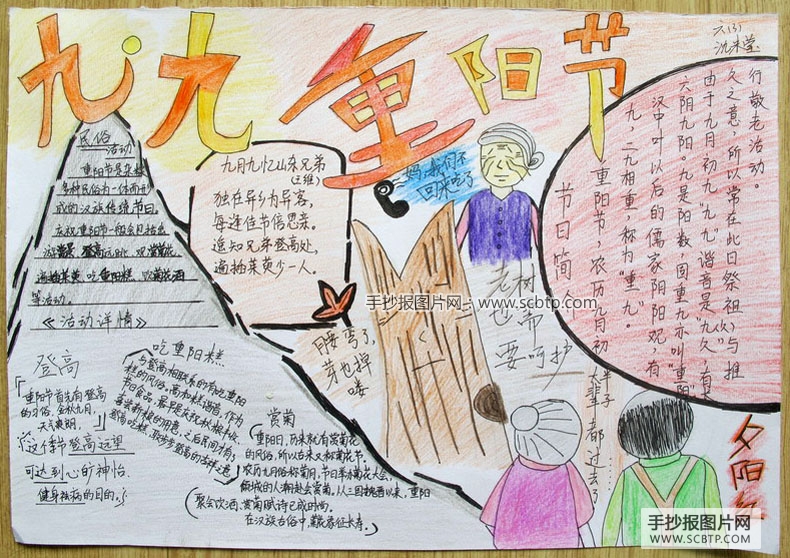 九九重阳节
六(3)
沈朱莹
民俗
活动
重阳节是杂糅
多种民俗为一体而形
成的汉族传统节日。
庆祝重阳节一般会包括出
游赏景、登高远眺、观赏菊花、
遍插茱萸、吃重阳糕、饮菊花酒
等活动。
《活动详情》
九月九忆山东兄弟
(王维)
独在异乡为异客,
每逢佳节倍思亲。
遥知兄弟登高处,
遍插茱萸少一人。
妈,我们不
回来吃了
节日简介
重阳节,农历九月初
九,二九相重,称为“重九”。
汉中叶以后的儒家阴阳观,有
六阴九阳。九是阳数,固重九亦叫“重阳”
由于九月初九“九九”谐音是“久久”,有长
久之意,所以常在此日祭祖与推
行敬老活动。
手抄报图片网:www.scbtp.com
老树
也需
要呵护
腰弯了,
芽也掉
喽
登高
重阳节首先有登高
的习俗,金秋九月,
天气爽朗,
这个季节登高远望
可达到心旷神怡、
健身祛病的目的。
吃重阳糕
与登高有联系的有吃重阳
糕的风俗。高和糕谐音,作为
节日食品,最早是庆祝秋粮丰收、
喜尝新粮的用意,之后民间才有
登高吃糕,取步步登高的吉祥之意
赏菊
重阳日,历来就有赏菊花
的风俗,所以古来又称菊花节。
农历九月俗称菊月,节日举办菊花大会,
倾城的人潮赴会赏菊。从三国魏晋以来,重阳
聚会饮酒、赏菊赋诗已成时尚。
在汉族古俗中,菊花象征长寿。
半子
大辈
都过去了……
夕阳红
手抄报图片网
WWW.SCBTP.COM